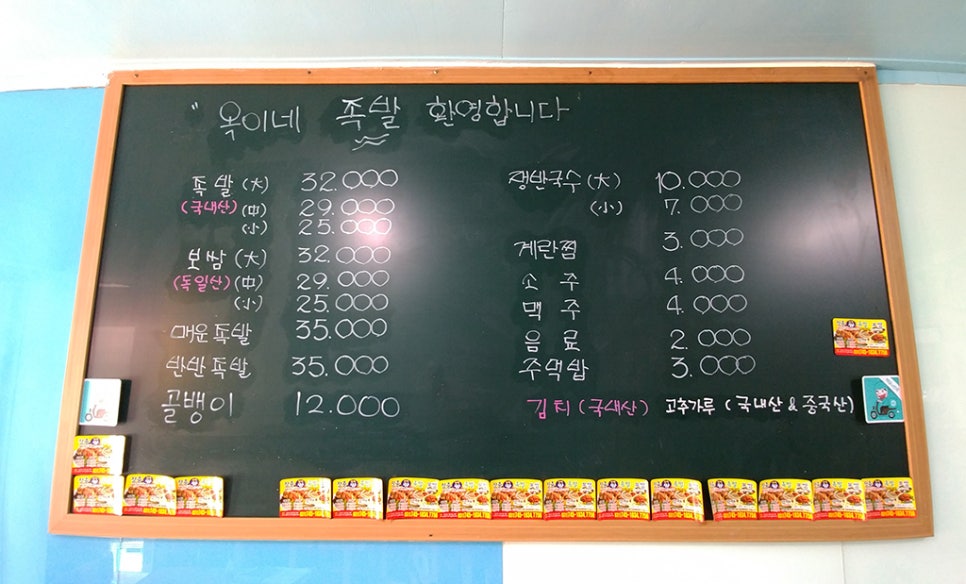 "옥이네 족발 환영합니다"
족발 (大) 32.000
(국내산) (中) 29.000
(小) 25.000
보쌈 (大) 32.000
(독일산) (中) 29.000
(小) 25.000
매운족발 35.000
반반족발 35.000
골뱅이 12.000
쟁반국수 (大) 10.000
(小) 7.000
계란찜 3.000
소주 4.000
맥주 4.000
음료 2.000
주먹밥 3.000
김치 (국내산) 고추가루 (국내산 & 중국산)